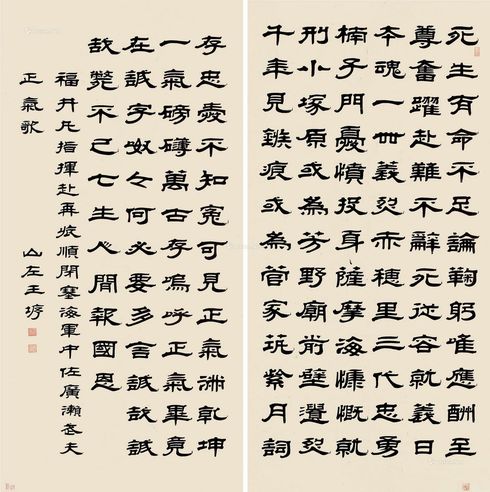 死生有命不足論鞠躬唯應酬至
尊奮躍赴難不辭死從容就義日
本魂一世義烈赤穗里三代忠勇
楠子門憂憤投身薩摩海慷慨就
刑小塚原或為芳野廟前壁遺烈
千年見鏃痕或為菅家筑紫月詞
存忠愛不知冤可見正氣滿乾坤
一氣磅礴萬古存嗚呼正氣畢竟
在誠字呶々何必要多言誠哉誠
哉斃不已七生人間報國恩
福井丸指揮赴再旅順閉塞海軍中佐廣瀨武夫
正氣歌
山左王垿